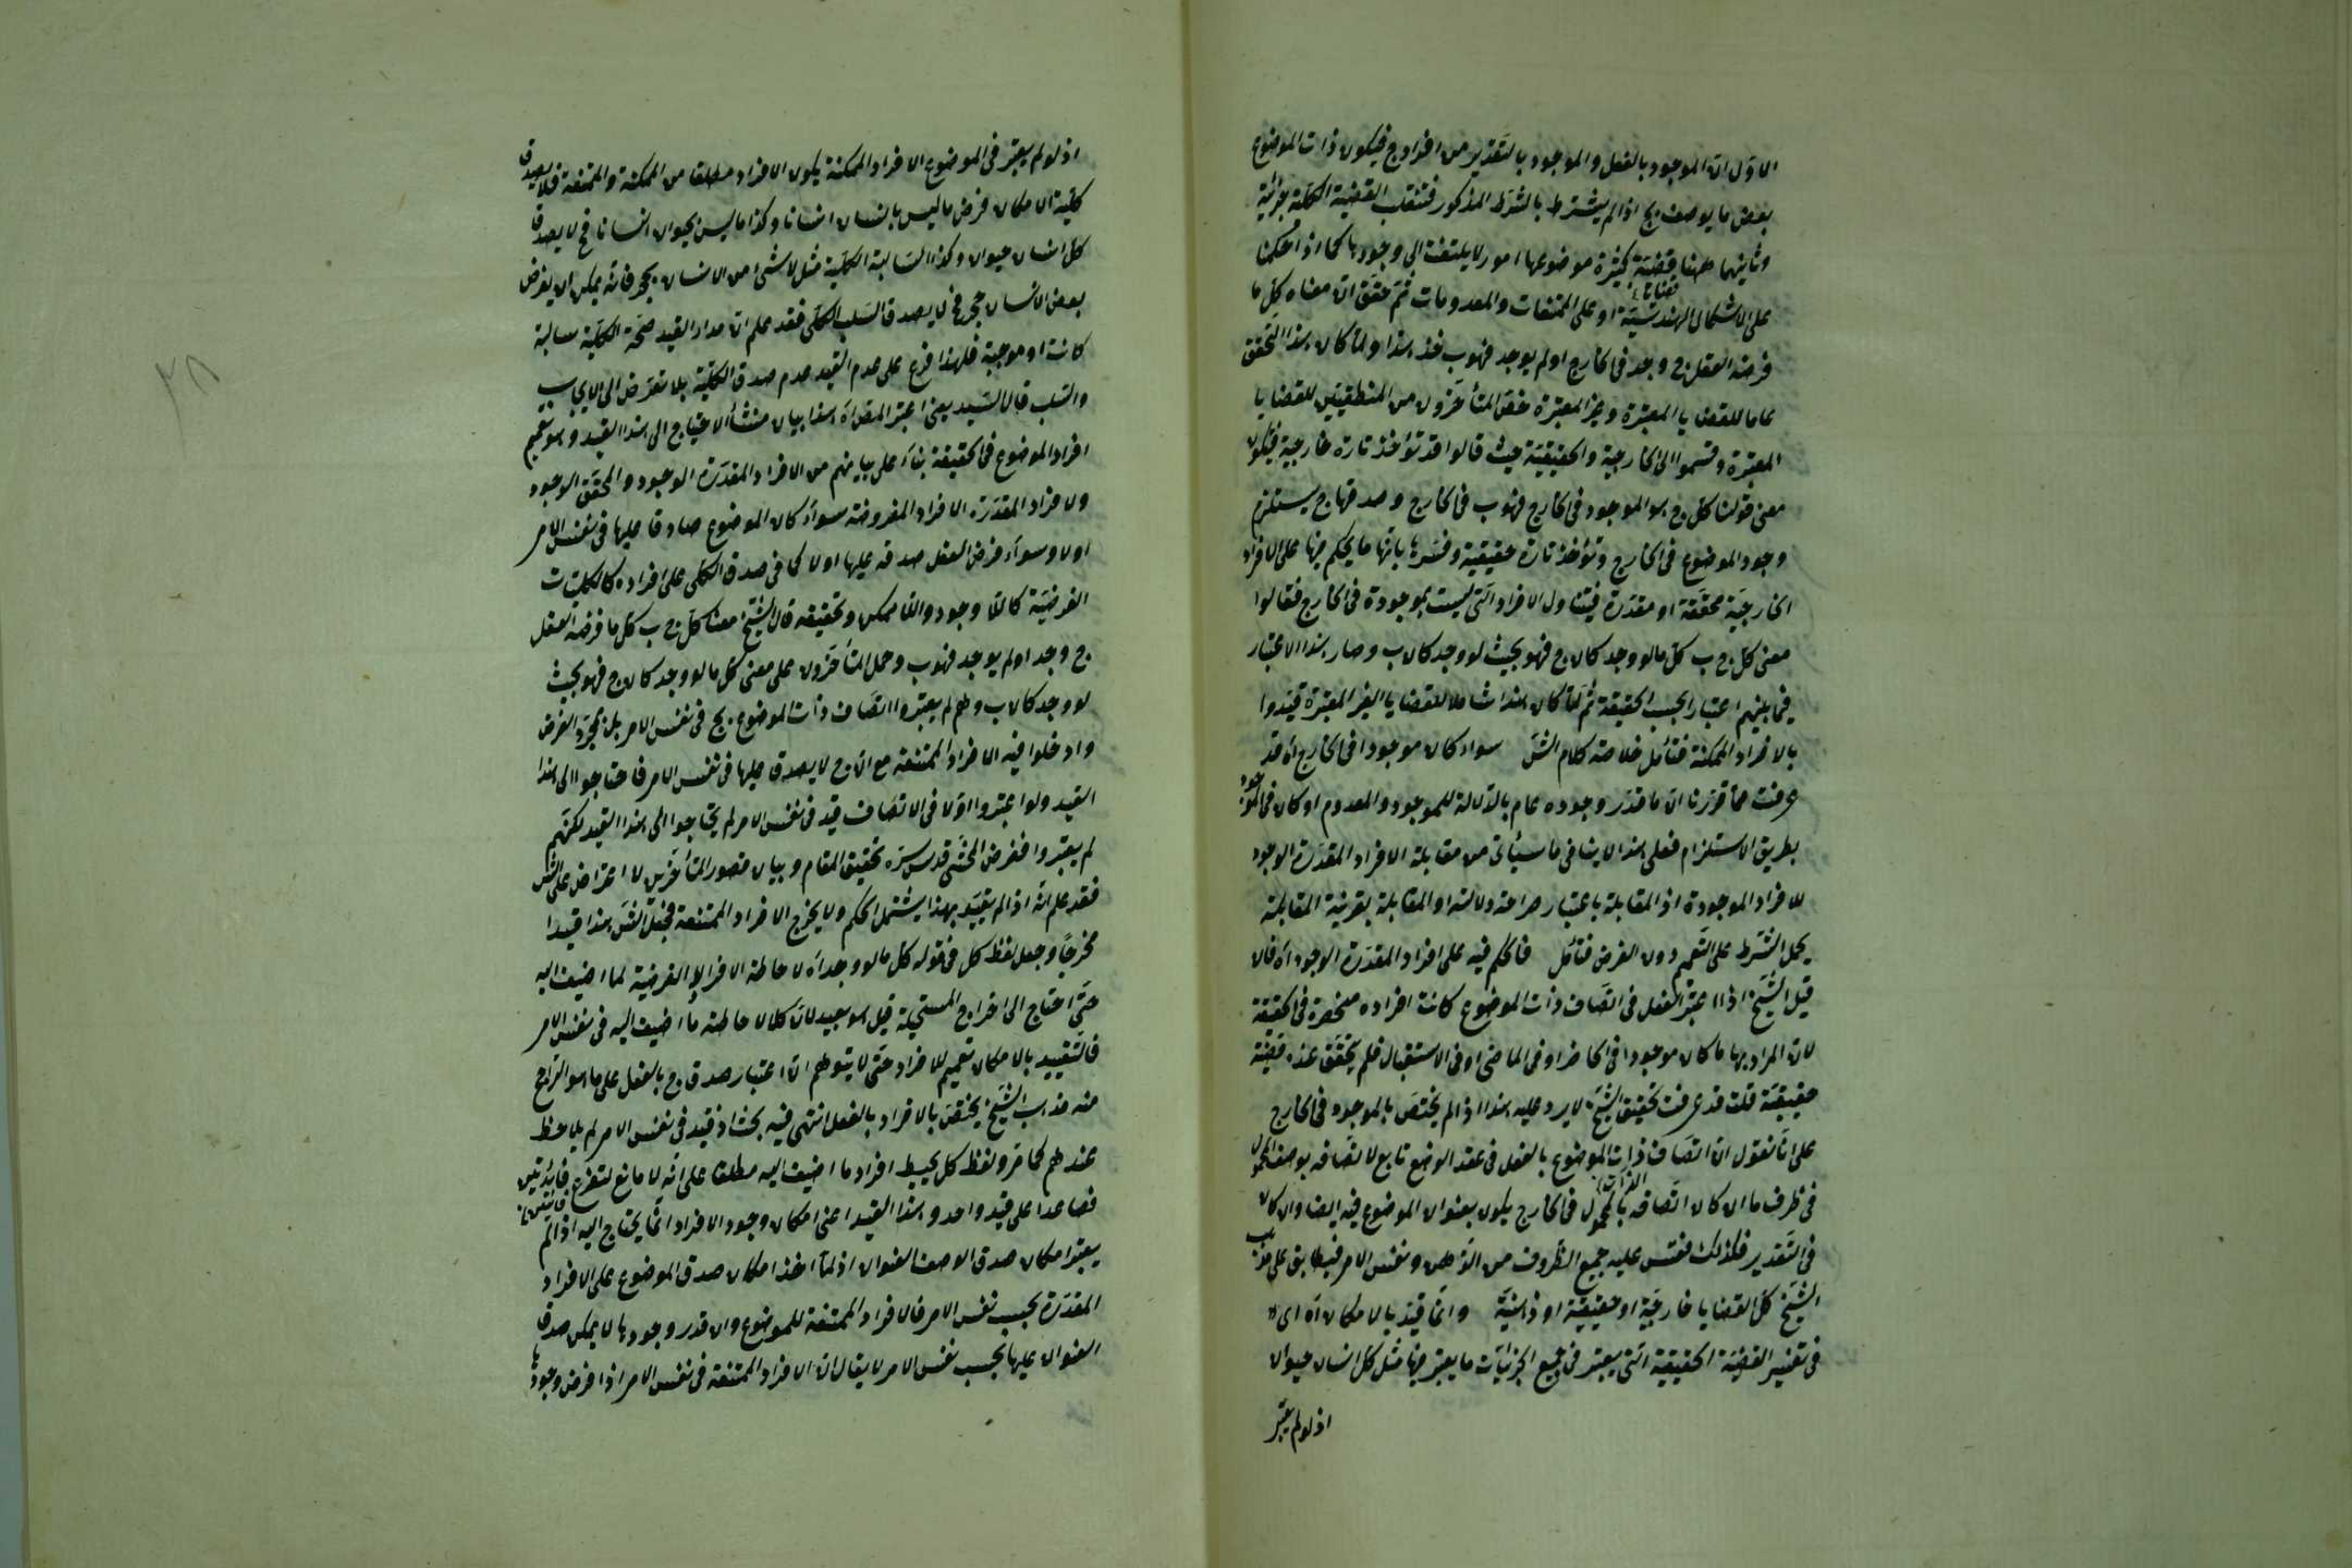 الاول ان الموجود بالفعل والموجود بالتقدير من افراد ج فيكون ذات الموضوع
بعض ما يوصف بج اذا لم يشترط بالشرط المذكور فتنقلب القضية الكلية جزئية
وثانيهما ههنا قضية كثيرة موضوعها امور لا يلتفت الى وجودها كما اذا حكمنا
على الاشكال الهندسية او على الممتنعات والمعدومات ثم حقق ان معناه كل ما
فرضه العقل ج وجد فى الخارج او لم يوجد فهو ب خذ هذا ولما كان هذا التحقق
عاما للقضايا المعتبرة وغير المعتبرة خص المتأخرون من المنطقيين للقضايا
المعتبرة وقسموا الى الخارجية والحقيقية حيث قالوا قد تؤخذ تارة خارجية فيكون
معنى قولنا كل ج هو الموجود فى الخارج فهو ب فى الخارج وصدقها ج يستلزم
وجود الموضوع فى الخارج وتؤخذ تارة حقيقية وفسرها بانها ما يحكم فيها على الافراد
الخارجية محققة او مقدرة فيتناول الافراد التى ليست بموجودة فى الخارج فقالوا
معنى كل ج ب كل ما لو وجد كان ج فهو بحيث لو وجد كان ب وصار هذا الاعتبار
فيما بينهم اعتبارا بحسب الحقيقة ثم لما كان هذا شاملا للقضايا الغير المعتبرة قيدوا
بالافراد الممكنة فتأمل خلاصة كلام الش سواء كان موجودا فى الخارج اه قد
عرفت مما قررنا ان ما قدر وجوده عام بالدلالة للموجود والمعدوم او كان فى الموجود
بطريق الاستلزام فعلى هذا لا ينافى ما سيأتى من مقابلة الافراد المقدرة الوجود
للافراد الموجودة اذ المقابلة باعتبار صراحة دلالته او المقابلة بقرينة المقابلة
يحمل الشرط على التعميم دون الفرض فتأمل فالحكم فيه على افراد المقدرة الوجود اه فان
قيل الشيخ اذا اعتبر الفعل فى اتصاف ذات الموضوع كانت افراده منحصرة فى الحقيقة
لان المراد بها ما كان موجودا فى الحاضر او فى الماضى او فى الاستقبال فلم يتحقق عنده قضية
حقيقية قلت قد عرفت تحقيق الشيخ لا يرد عليه هذا اذ لم يختص بالموجود فى الخارج
على انا نقول ان اتصاف ذات الموضوع بالفعل فى عقد الوضع تابع لاتصافه بوصف المحمول
فى ظرف ما ان كان اتصافه بالمحمول فى الخارج يكون بعنوان الموضوع فيه ايضا وان كان
فى التقدير فكذلك فقس عليه جميع الظروف من الذهن ونفس الامر فيطابق على مذهب
الشيخ كل القضايا خارجية او حقيقية او ذهنية وانما قيد بالامكان اه اى
فى تفسير القضية الحقيقية التى يعتبر فى جميع الجزئيات ما يعتبر فيها مثل كل انسان حيوان
اذ لو لم يعتبر
اذ لو لم يعتبر فى الموضوع الافراد الممكنة يكون الافراد مطلقا من الممكنة والممتنعة فلا يصدق
كلية الامكان فرض ما ليس بانسان انسانا وكذا ما ليس بحيوان انسانا فح لا يصدق
كل انسان حيوان وكذا السالبة الكلية مثل لا شئ من الانسان بحجر فانه يمكن ان يفرض
بعض الانسان حجر فح لا يصدق السلب الكلى فقد علم ان مدار القيد صحة الكلية سالبة
كانت او موجبة فلهذا فرع على عدم القيد عدم صدق الكلية بلا تعرض الى الايجاب
والسلب قال السيد يعنى اعتبر المص اه هذا بيان منشأ الاحتياج الى هذا القيد وهو تعميم
افراد الموضوع فى الحقيقة بناء على بيانهم من الافراد المقدرة الوجود والمحقق الوجود
ولافراد المقدرة الافراد المفروضة سواء كان الموضوع صادقا عليها فى نفس الامر
اولا وسواء فرض العقل صدقه عليها اولا كما فى صدق الكلى على افراده كالكليات
الفرضية كاللا وجود واللا ممكن وتحقيقه قال الشيخ معنى كل ج ب كل ما فرضه العقل
ج وجد او لم يوجد فهو ب وحمل المتأخرون على معنى كل ما لو وجد كان ج فهو بحيث
لو وجد كان ب وهم لم يعتبروا اتصاف ذات الموضوع بج فى نفس الامر بل بمجرد الفرض
وادخلوا فيه الافراد الممتنعة مع ان ج لا يصدق عليها فى نفس الامر فاحتاجوا الى هذا
القيد ولو اعتبروا اولا فى الاتصاف قيد فى نفس الامر لم يحتاجوا الى هذا القيد لكنهم
لم يعتبروا فغرض المحشى قدس سره تحقيق المقام وبيان قصور المتأخرين لا اعتراض على الش
فقد علم انه اذا لم يقيد بهذا يشتمل الحكم ولا يخرج الافراد الممتنعة فجعل الش هذا قيدا
مخرجا وجعل لفظ كل فى قوله كل ما لو وجد اه لاحاطة الافراد الفرضية لما اضيف اليه
حتى احتاج الى اخراج المستحيلة قيل هو بعيد لان كلا لاحاطة ما اضيف اليه فى نفس الامر
فالتقييد بالامكان تعميم للافراد حتى لا يتوهم ان اعتبار صدق ج بالفعل على ما هو الراجح
منه مذهب الشيخ يختص بالافراد بالفعل انتهى فيه بحث اذ قيد فى نفس الامر لم يلاحظ
عندهم كما مر ولفظ كل يحيط افراد ما اضيف اليه مطلقا على انه لا مانع لتفرع فائدتين
فصاعدا على قيد واحد وهذا القيد اعنى امكان وجود الافراد انما يحتاج اليه اذا لم
يعتبر امكان صدق الوصف العنوان اذ لما اخذ امكان صدق الموضوع على الافراد
المقدرة بحسب نفس الامر فالافراد الممتنعة للموضوع وان قدر وجودها لا يمكن صدق
العنوان عليها بحسب نفس الامر لا يقال ان الافراد الممتنعة فى نفس الامر اذا فرض وجودها